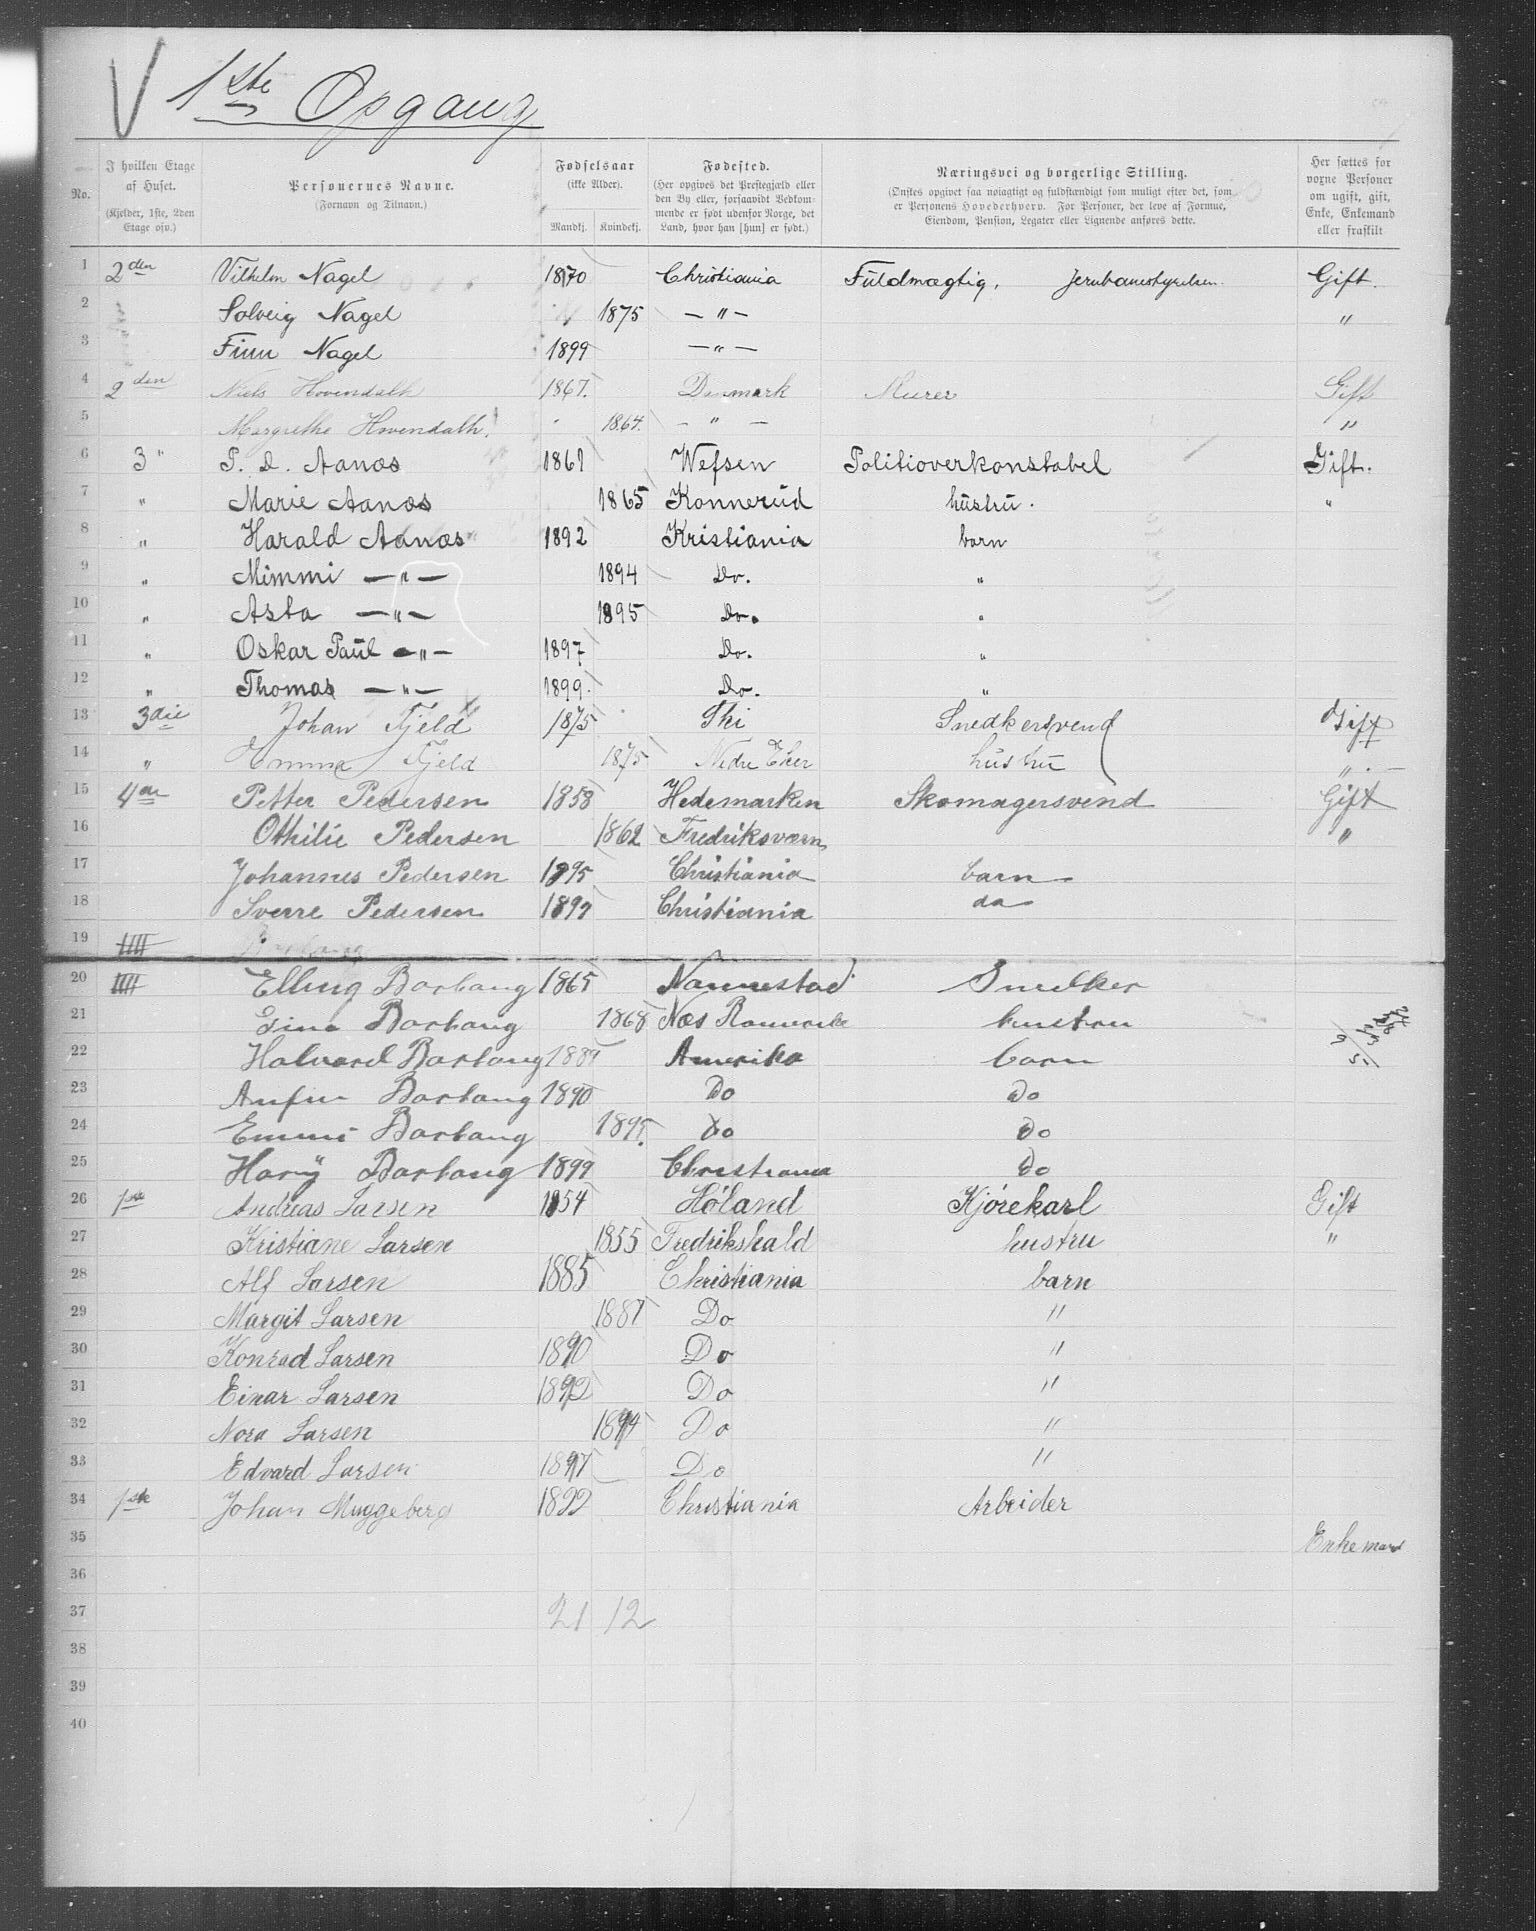 V 1ste Opgang
No. | I hvilken Etage af Huset. (Kjelder, 1ste, 2den Etage osv.) | Personernes Navne. (Fornavn og Tilnavn.) | Fødselsaar (ikke Alder). Mandkj. Kvindekj. | Fødested. (Her opgives det Prestegjæld eller den By eller, forsaavidt Vedkommende er født udenfor Norge, det Land, hvor han [hun] er født.) | Næringsvei og borgerlige Stilling. (Ønskes opgivet saa nøiagtigt og fuldstændigt som muligt efter det, som er Personens Hovederhverv. For Personer, der leve af Formue, Eiendom, Pension, Legater eller Lignende anføres dette. | Her sættes for voxne Personer om ugift, gift, Enke, Enkemand eller fraskilt
1 2den Vilhelm Nagel 1870 Christiania Fuldmægtig, Jernbanestyrelsen. Gift.
2 Solveig Nagel 1875 — " — "
3 Finn Nagel 1899 — " —
4 2den Niels Hovendalh 1867. Danmark Murer Gift
5 Margrethe Hovendalh. 1864. — " — "
6 3 " P. D. Aanæs 1861 Wefsen Politioverkonstabel Gift.
7 " Marie Aanæs 1865 Konnerud hustru. "
8 " Harald Aanæs 1892 Kristiania barn
9 " Mimmi — " — 1894 Do. "
10 " Asta — " — 1895 Do. "
11 " Oskar Paul — " — 1897 Do. "
12 " Thomas — " — 1899. Do. "
13 3die Johan Fjeld 1875 Thi Snedkersvend Gift
14 " Emma Fjeld 1875 Nedre Eker hustru "
15 4de Petter Pedersen 1858 Hedemarken Skomagersvend Gift
16 Othilie Pedersen 1862 Fredriksværn "
17 Johannes Pedersen 1895 Christiania barn
18 Sverre Pedersen 1897 Christiania do
19 IIII
20 IIII Elling Borbang 1865 Nannestad Snedker
21 Gina Borbang 1868 Næs Romerike hustru
22 Halvard Borbang 1889 Amerika barn
23 Anfin Borbang 1890 Do Do
24 Emmi Borbang 1895. Do Do
25 Harry Borbang 1899 Christiania Do
26 1ste Andreas Larsen 1854 Høland Kjørekarl Gift
27 Kristiane Larsen 1855 Fredrikshald hustru "
28 Alf Larsen 1885 Christiania barn
29 Margit Larsen 1887 Do "
30 Konrad Larsen 1890 Do "
31 Einar Larsen 1892 Do "
32 Nora Larsen 1894 Do "
33 Edvard Larsen 1897 Do "
34 1ste Johan Muggeberg 1822 Christiania Arbeider
35 Enkemand
36
37 21 12
38
39
40